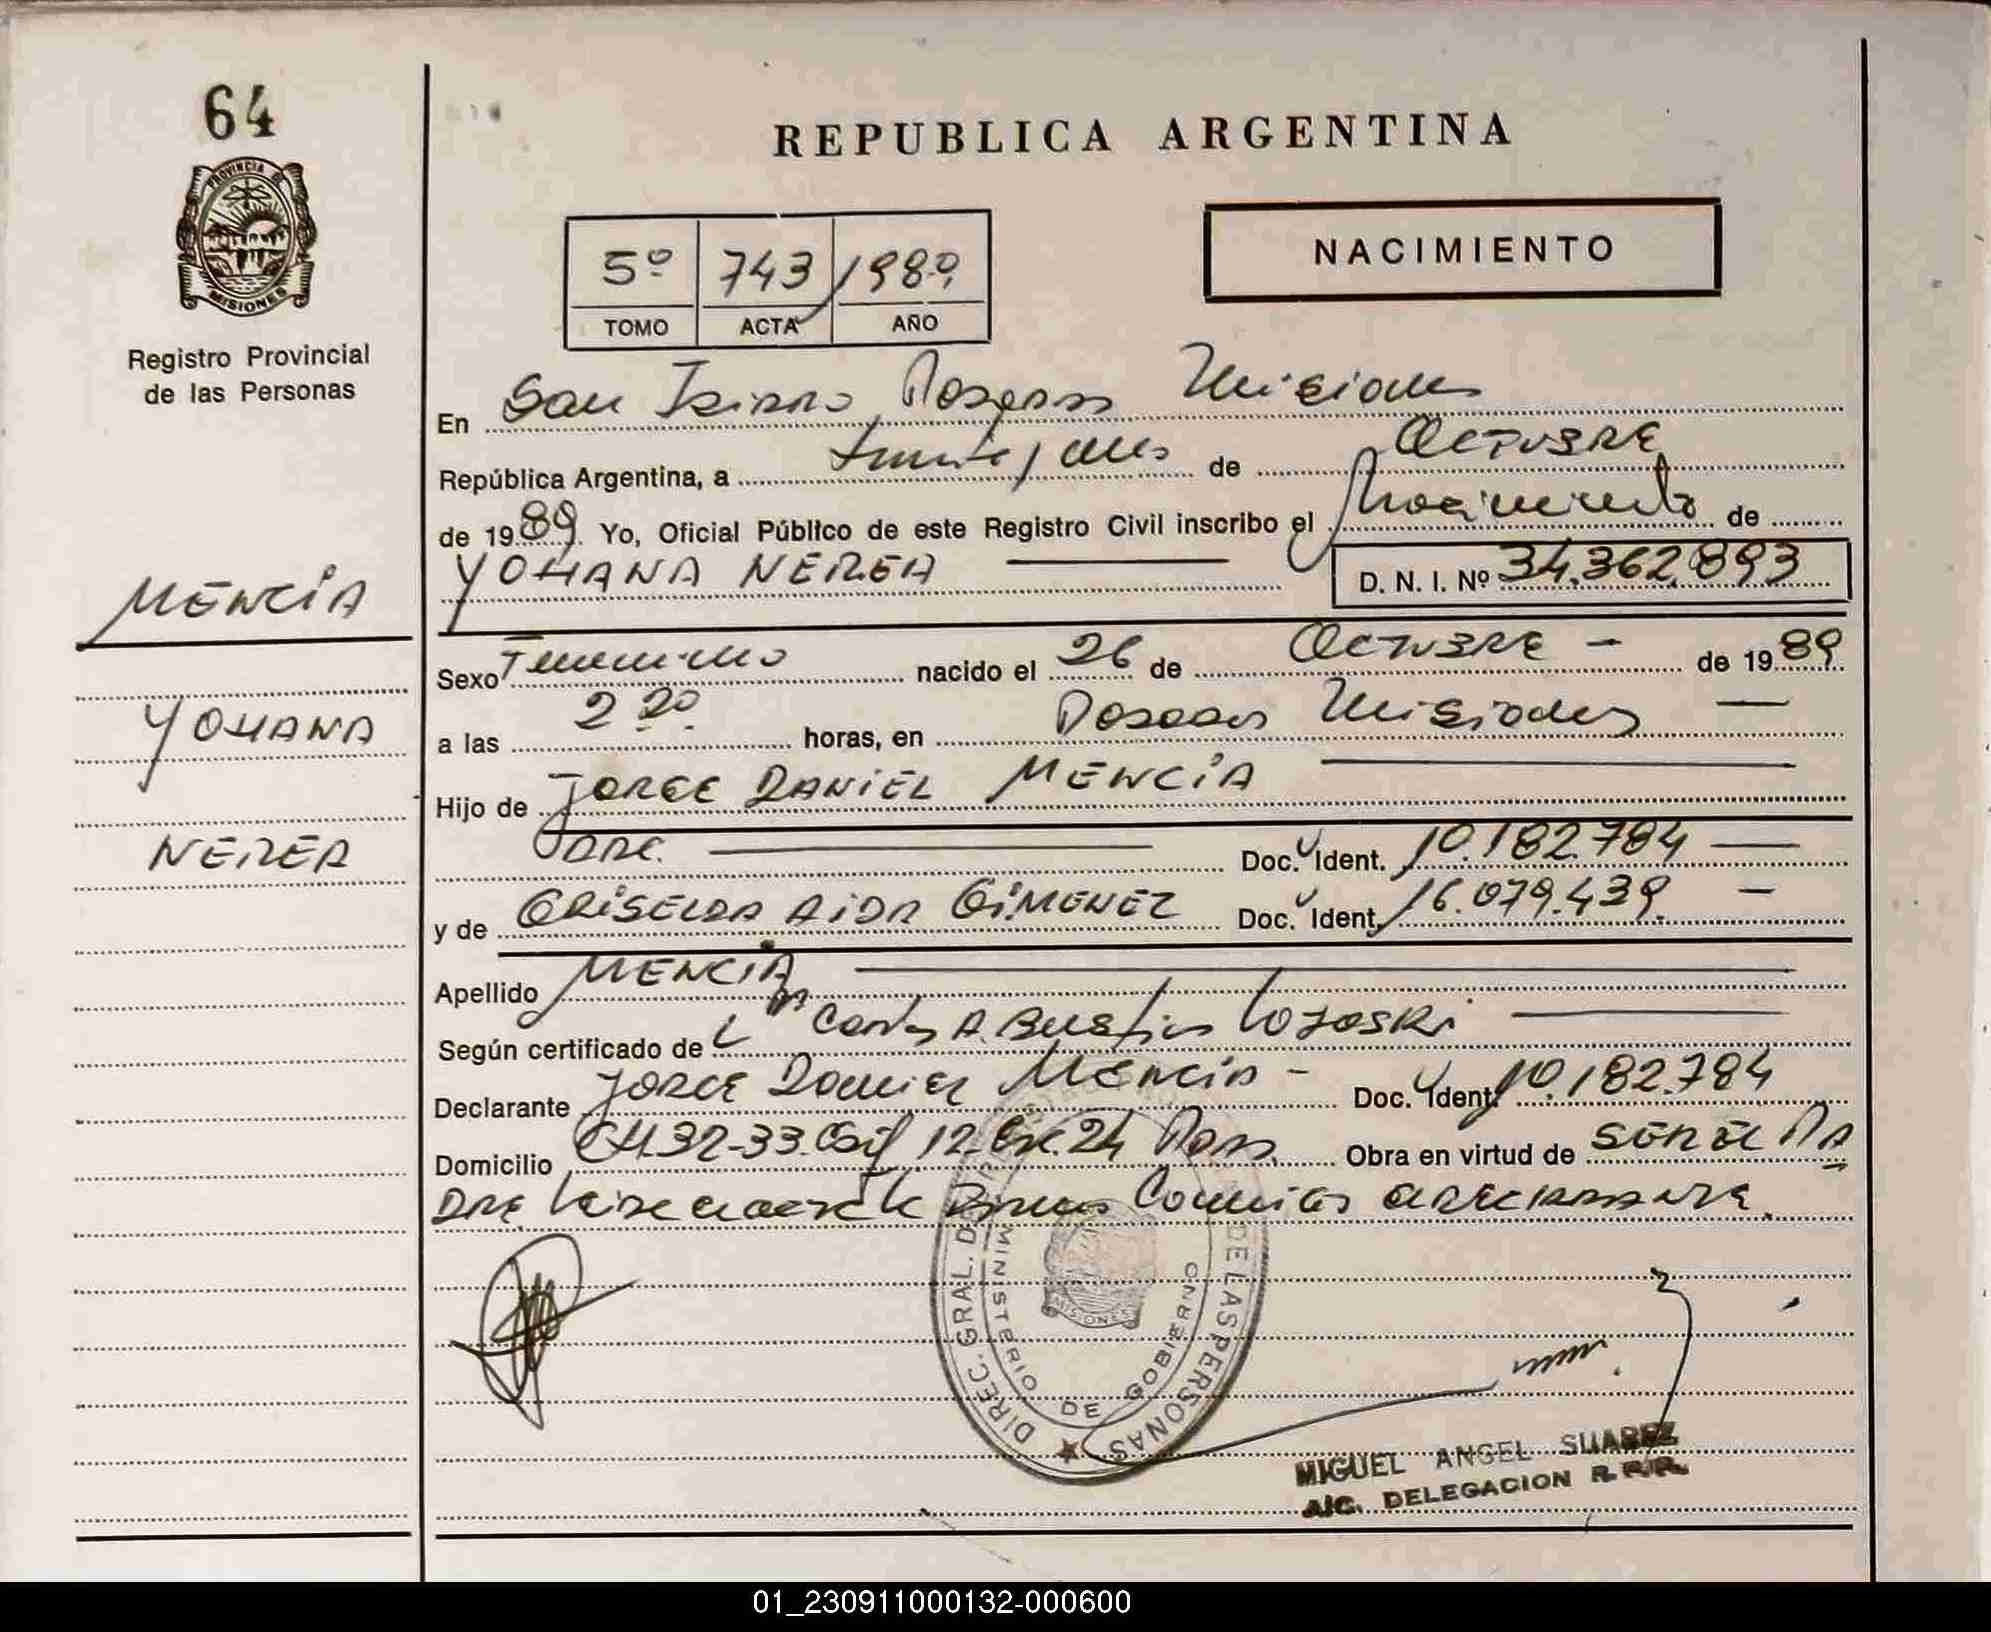 64
PROVINCIA DE
MISIONES
Registro Provincial
de las Personas
REPUBLICA ARGENTINA
NACIMIENTO
5º 743 1989
TOMO ACTA AÑO
En San Isidro Posadas Misiones
República Argentina, a treinta y uno de OCTUBRE
de 1989. Yo, Oficial Público de este Registro Civil inscribo el Nacimiento de
YOHANA NEREA D. N. I. Nº 34.362.893
MENCIA
YOHANA
NEREA
Sexo Femenino nacido el 26 de OCTUBRE - de 1989
a las 2 20 horas, en Posadas Misiones
Hijo de JORGE DANIEL MENCIA
Doc. Ident. 10.182.784
y de GRISELDA AIDA GIMENEZ Doc. Ident. 16.079.439
Apellido MENCIA
Según certificado de Carlos Agustin
Declarante JORGE Daniel MENCIA - Doc. Ident. 10.182.784
Domicilio CH.32-33. 12. 24 Obra en virtud de SER EL PA
DRE DECLARANTE.
DIREC. GRAL. DE LAS PERSONAS
MINISTERIO DE GOBIERNO
MISIONES
MIGUEL ANGEL SUAREZ
A/C. DELEGACION R.P.P.
01_230911000132-000600